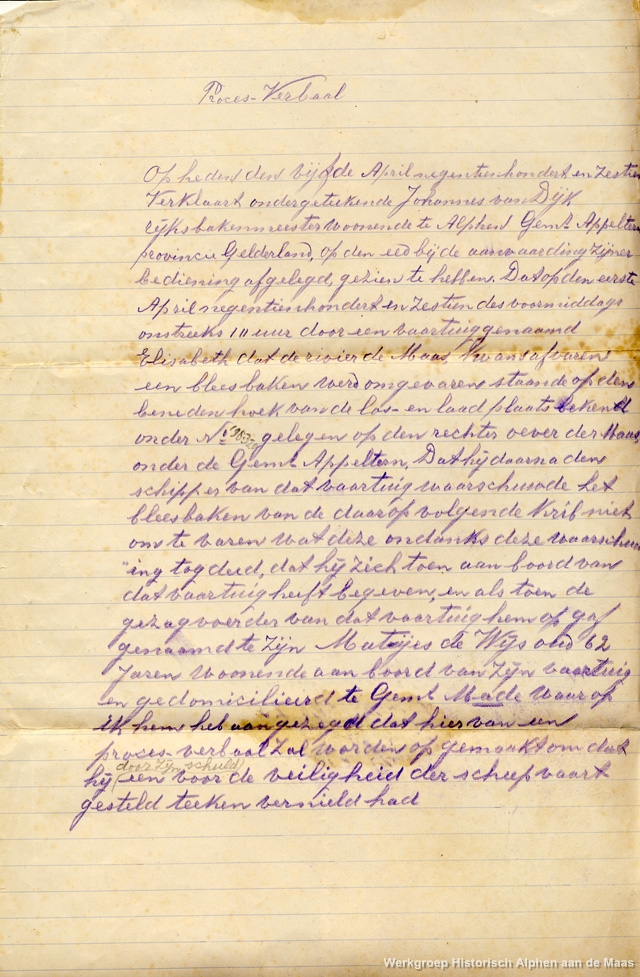 Proces-Verbaal
Op heden den vijfde April negentienhondert en Zestien
Verklaart ondergetekende Johannes van Dijk
rijksbakenmeester woonende te Alphen Gemt. Appeltern
provincie Gelderland, op den eed bij de aanvaarding zijner
bediening afgelegd, gezien te hebben. Dat op den eerste
April negentienhondert en Zestien des voormiddags
omstreeks 11 uur door een vaartuig genaamd
Elisabeth dat de rivier de Maas kwam afvaren
een bleesbaken werd omgevaren staande op den
beneden hoek van de los- en laad plaats bekend
onder No gelegen op den rechter oever der Maas,
onder de Gemt. Appeltern, Dat hij daarna den
schipper van dat vaartuig waarschuwde het
bleesbaken van de daarop volgende Krib niet
om te varen wat deze ondanks deze waarschuw
"ing tog deed, dat hij zich toen aan boord van
dat vaartuig heeft begeven, en als toen de
gezagvoerder van dat vaartuig hem op gaf
genaamd te Zijn Matijes de Wijs oud 62
Jaren woonende aan boord van Zijn vaartuig
en gedomicilieerd te Gemt. Made waar op
ik hem heb aangezegd dat hier van een
proces-verbaal Zal worden op gemaakt om dat
door Zijn schuld
hij een voor de veiligheid der scheepvaart
gesteld teeken vernield had
Werkgroep Historisch Alphen aan de Maas